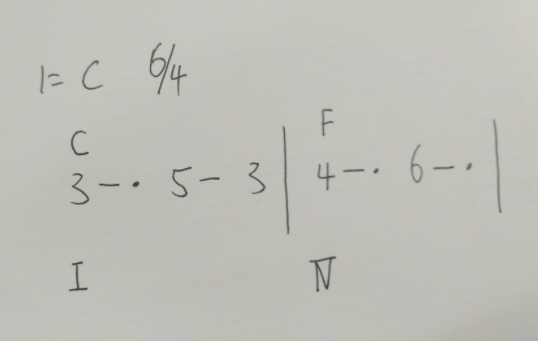 1= C 6/4
C F
3 – · 5 – 3 | 4 – · 6 – · |
I IV